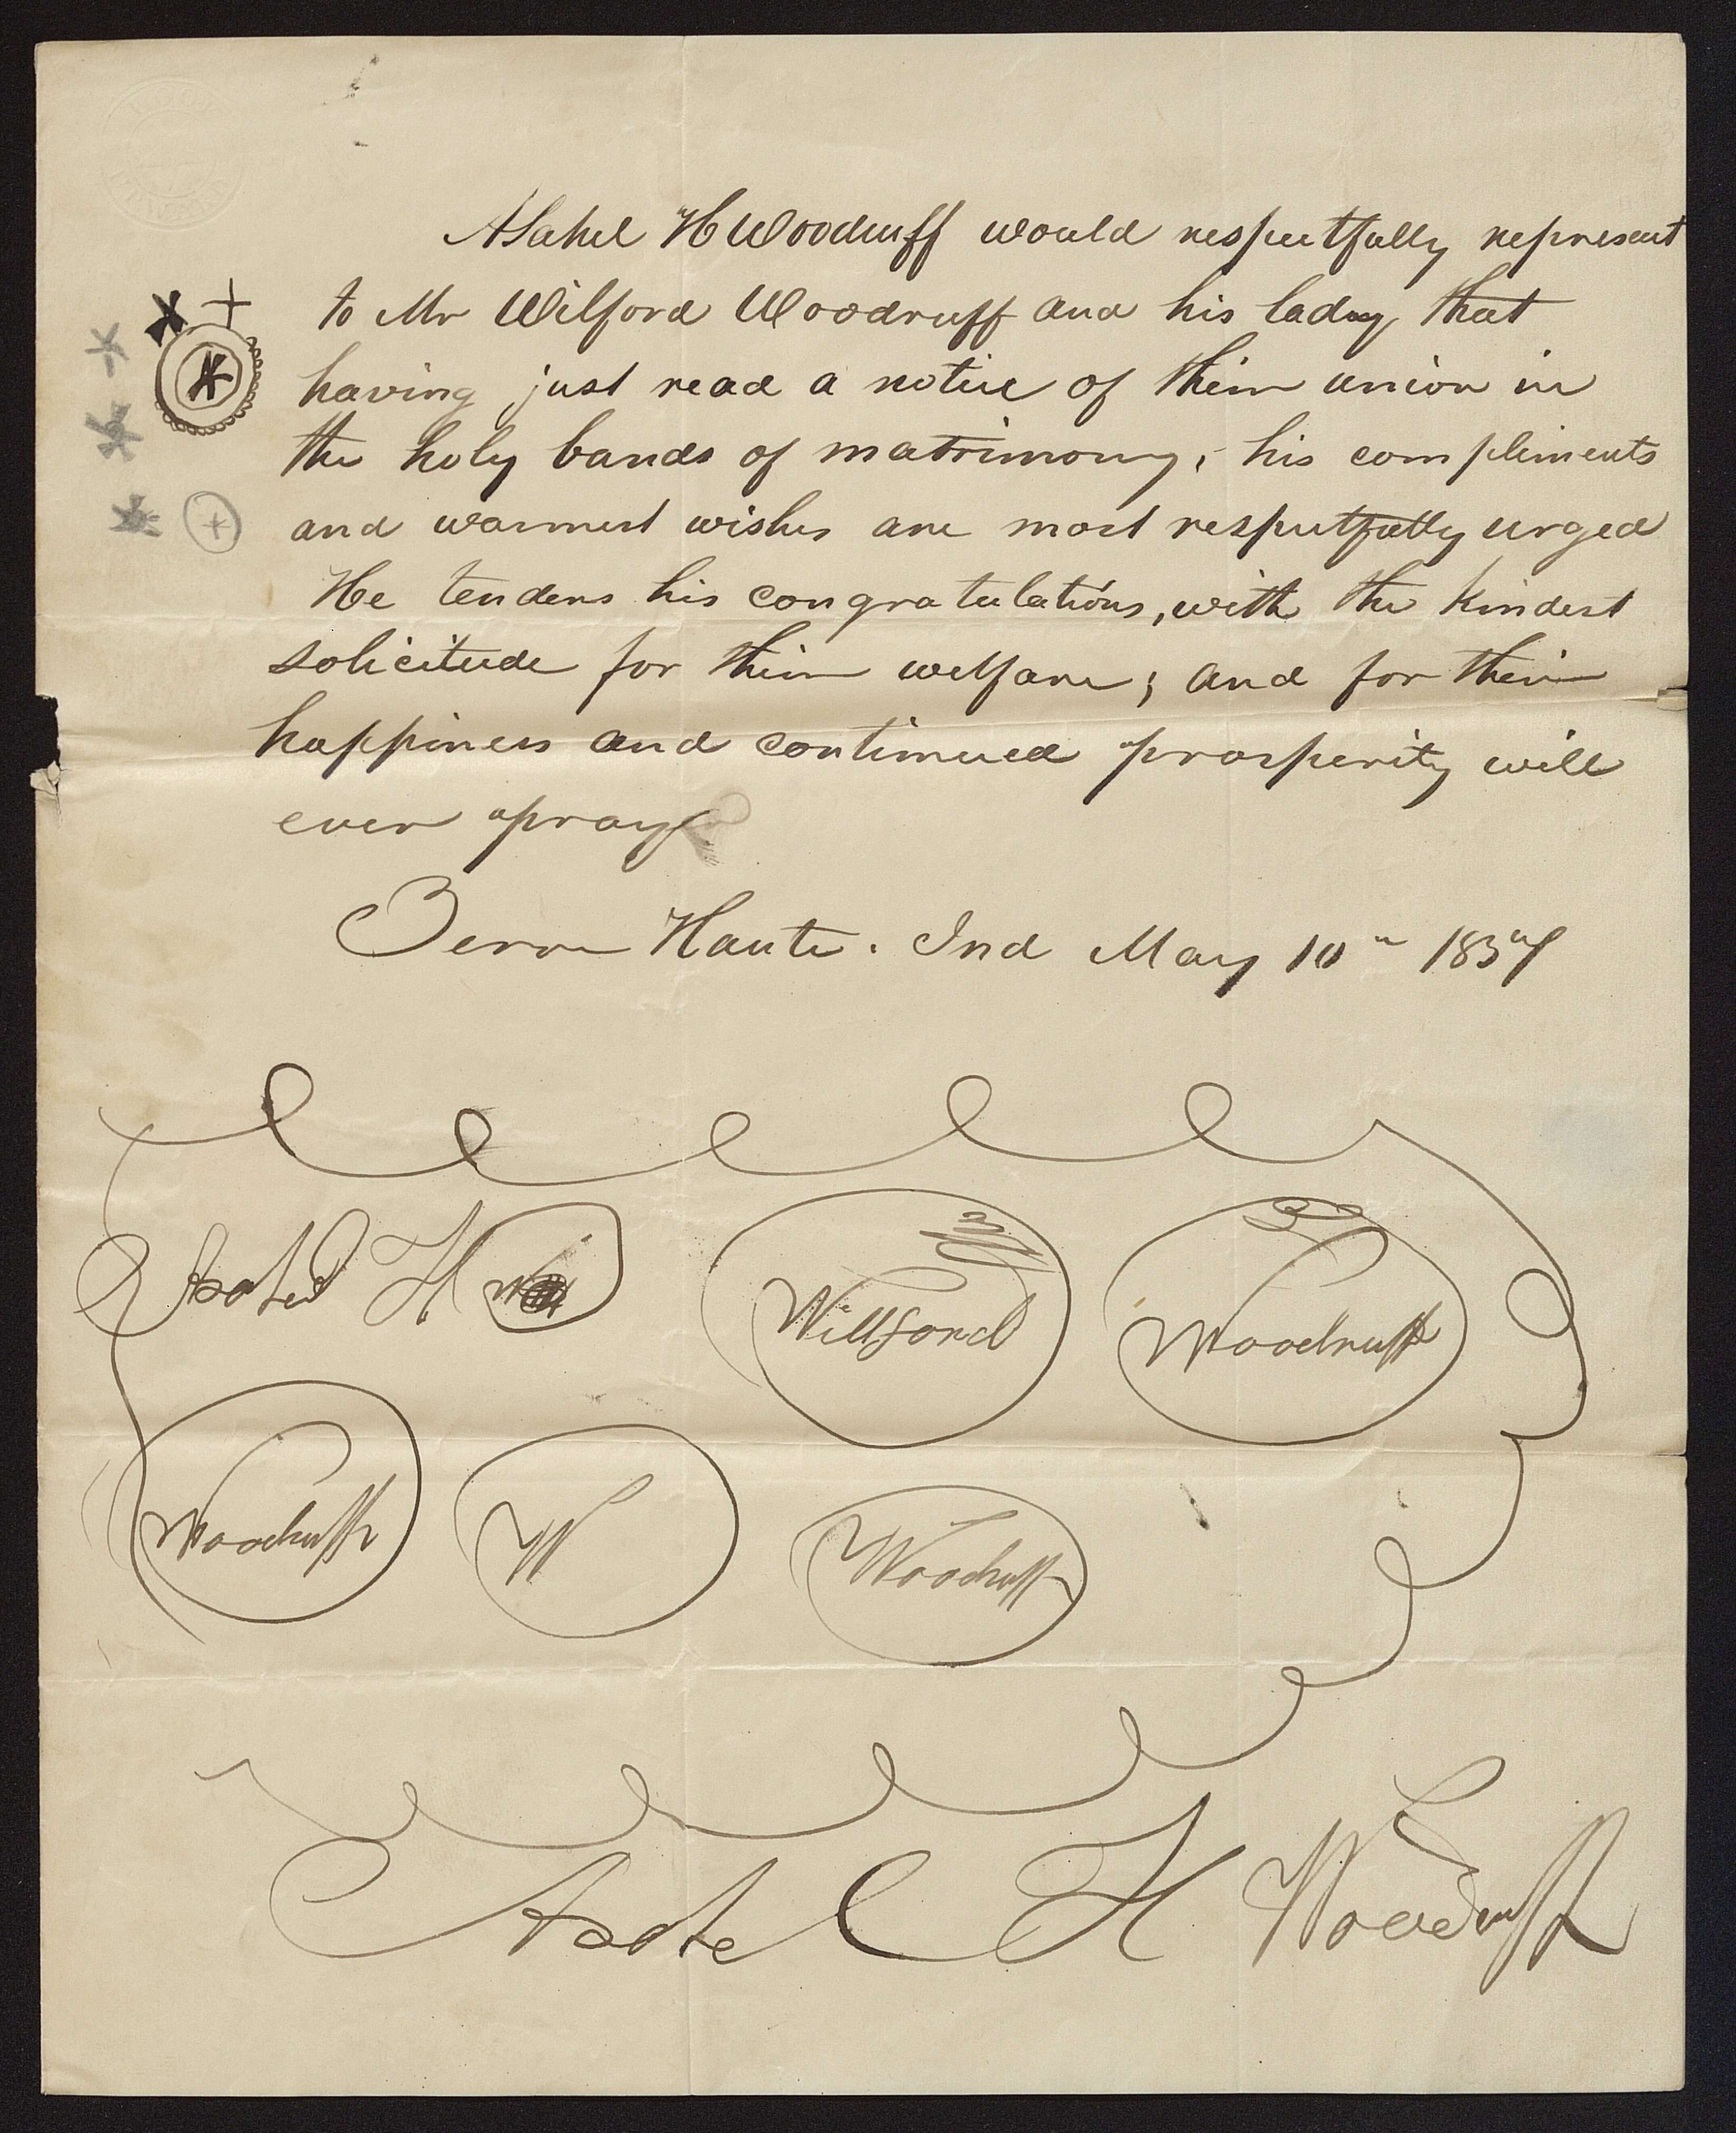 Asahel H Woodruff would respectfully represent
to Mr Wilford Woodruff and his lady, that
having just read a notice of their union in
the holy bands of matrimony, his compliments
and warmest wishes are most respectfully urged
He tenders his congratulations, with the kindest
solicitude for their welfare; and for their
happiness and continued prosperity will
ever pray
Terre Haute. Ind May 10" 1837
Asahel H
Willford Woodruff
Woodruff W Woodruff
Asahel H Woodruff